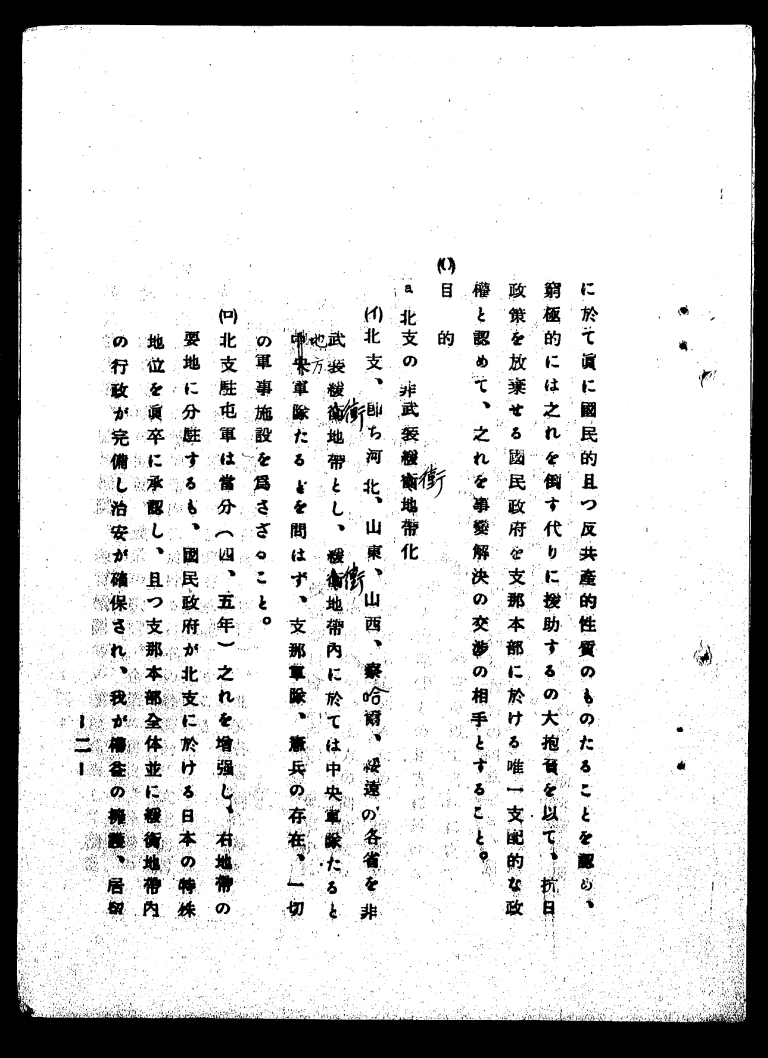 に於て眞に國民的且つ反共產的性質のものたることを認め、
窮極的には之れを倒す代りに援助するの大抱負を以て、抗日
政策を放棄せる國民政府を支那本部に於ける唯一支配的な政
權と認めて、之れを事變解決の交渉の相手とすること。
(ロ)目的
a 北支の非武装緩衝地帶化
(イ)北支、卽ち河北、山東、山西、察哈爾、綏遠の各省を非
武装緩衝地帶とし、緩衝地帶內に於ては中央軍隊たると
地方軍隊たるとを問はず、支那軍隊、憲兵の存在、一切
の軍事施設を爲さざること。
(ロ)北支駐屯軍は當分(四、五年)之れを增强し、右地帶の
要地に分駐するも、國民政府が北支に於ける日本の特殊
地位を眞卒に承認し、且つ支那本部全体並に緩衝地帶內
の行政が完備し治安が確保され、我が權益の擁護、居留
-二-